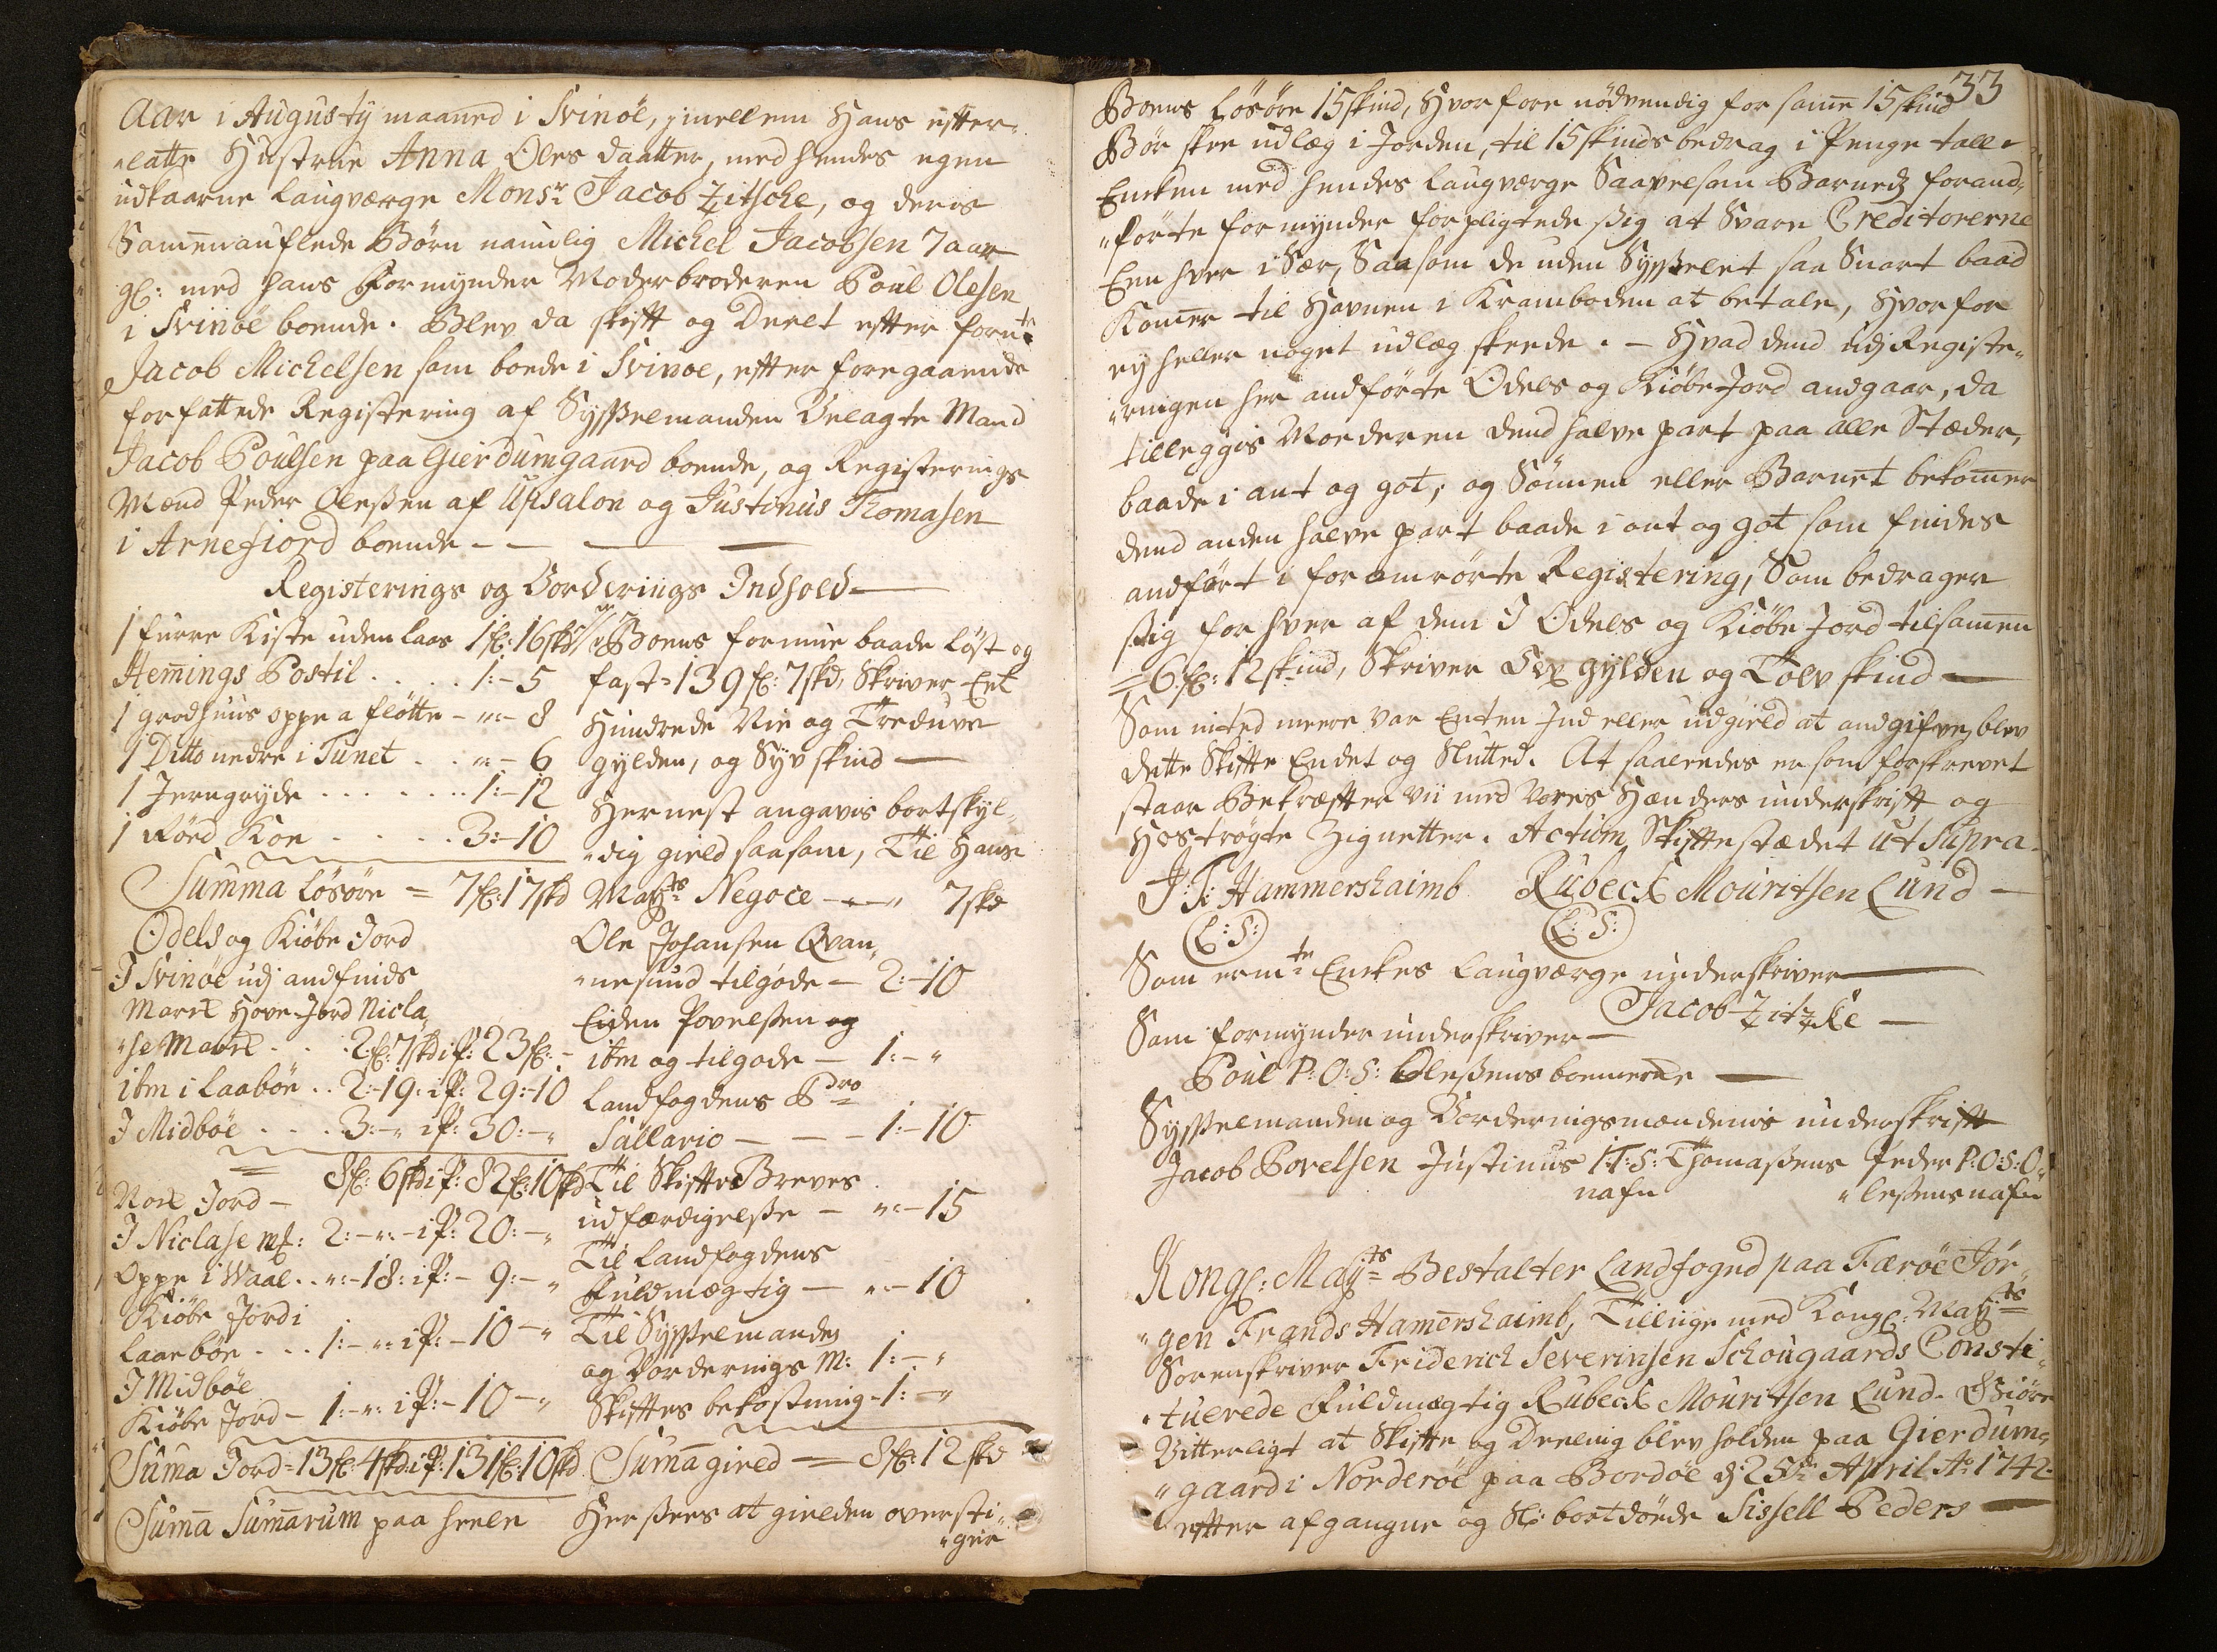 Aar i Augustÿ maaned i Svinöe, imellem Hans efter-
„latte Hustrue Anna Oles daatter, med hendes egen
udkaarne Laugværge Monsr Jacob Zitsche, og deris
Sammenauflede Börn namblig Michel Jacobsen 7 aar
gl: med hans Formynder Moderbroderen Poul Olesen
i Svinöe boende. Blev da skift og Deelt efter fornte
Jacob Michelsen som boede i Svinoe, efter foregaaende
forfattede Registering af Sysselmanden Velagte Mand
Jacob Poulsen paa Gierdumgaard boende, og Registerings
Mænd Peder Olessen af Upsalon og Justinus Thomasen
i Arnefiord boende - - -
Registerings og Vorderings Indhold
1 furre Kiste uden laas 1 fl: 16 skd
Hemings Postil . . . . 1:-5
1 grodhuus oppe a fløtte - „-8
1 Ditto nedre i Tunet . . „-6
1 Jerngryde . . . . . . 1:-12
1 Rörd Koe . . . . 3:-10
Summa Lösöre = 7 fl: 17 skd
Odels og Kiöbe Jord
I Svinöe udj andfinds
March Hove-Jord Nicla„
„se March . . . 2 fl: 7 skd i P: 23 fl: -
itm i Laaböe . . 2:-19: i P: 29:-10
I Midböe . . . 3:-„ i P: 30:-„
= 8 fl: 6 skd i P: 82 fl: 10 skd
Noch Jord -
I Niclase m: 2:-„:-i P: 20:-„
Oppe i Waal . . „:-18: i P: - 9:-„
Kiöbe Jord i
Laaeböe . . . 1:-„: i P: -10-„
I Midböe
Kiöbe Jord - 1:-„: i P: -10-„
Suma Jord = 13 fl: 4 skd: i P: 131 fl: 10 skd
Suma Sumarum paa heele
Boens formue baade löst og
fast = 139 fl: 7 skd, Skriver Eet
Hundrede Nie og Treduve
gylden, og Syv skind
Hernest angavis bortskyl„
„dig gield saasom, Til Hans
Mayts Negoce - „ - „ 7 skd
Ole Johansen Qvan„
„nesund tilgode - 2:-10
Eiden Povelssen og
itm og tilgode - 1:-„
Landfogdens Pdro
Sallario - - - 1:-10
Til Skifte Breves
udfærdigelsse - „:-15
Til Landfogdens
Fuldmægtig - „-10
Til Sysselmanden
og Vorderings M: 1:-„
Skiftes bekostning - 1:-„
Suma gield = 8 fl: 12 skd
Her sees at gielden oversti„
„ger
33
Boens Lösöre 15 skind, Hvorfore nödvendig for same 15 skind
Bör skee udlæg i Jorden, til 15 skinds bedrag i Penge tall
Enken med hendes Laugværge Saavelsom Barnedz forand„
„förte formynder forpligtede sig at Svare Creditorerne
Een hver i Sær, Saasom de uden Sysselet saa Snart baad
Komer til Havnen i Kramboden at betale, Hvorfor
ej heller noget udlæg skeede. - Hvad dend udj Registe„
„ringen her andförte Odels og Kiöbe-Jord andgaar, da
tilleggis Moderen dend halve part paa alle Stæder,
baade i ant og got, og Sönnen eller Barnet bekomer
dend anden halve part baade i ont og got som findes
andfört i foromrörte Registering, Som bedrager
sig for hver af dem I Odels og Kiöbe Jord tilsamen
= 6 fl: 12 skind, Skriver Sex gylden og Tolv skind
Som inted meere var Enten Ind eller udgield at andgifve, blev
dette Skifte Endet og Slutted. At saaledes er som forskrevet
staar Bekræfter vii med Vores Hænders underskrift og
Hoströgte Zignetter. Actum Skiftestædet Ut Supra.
J: F: Hammershaimb Rubeck Mouritsen Lund -
(L: S:) (L: S:)
Som ermte Enkes Laugværge underskriver
Jacob Zitzke -
Som formynder underskriver -
Poul P: O: S: Olessens boemerke
Sysselmanden og Vorderingsmændenis underskrift
Jacob Povelsen Justinus I: T: S: Thomassens Peder P: O: S: O„
nafn „lessens nafn
Kongl: Mayts Bestalter Landfogud paa Færöe Jör„
„gen Frands Hamershaimb, Tillige med Kongl: Mayts
Sorenskriver Friderich Severinsen Schougaards Consti„
„tuerede Fuldmægtig Rubeck Mouritsen Lund. Giöre
Vitterligt at Skifte og Deeling blev holden paa Gierdum„
„gaard i Norderöe paa Bordöe d: 25de April Ao 1742.
efter afgangne og Sl: bortdöede Sissell Peders